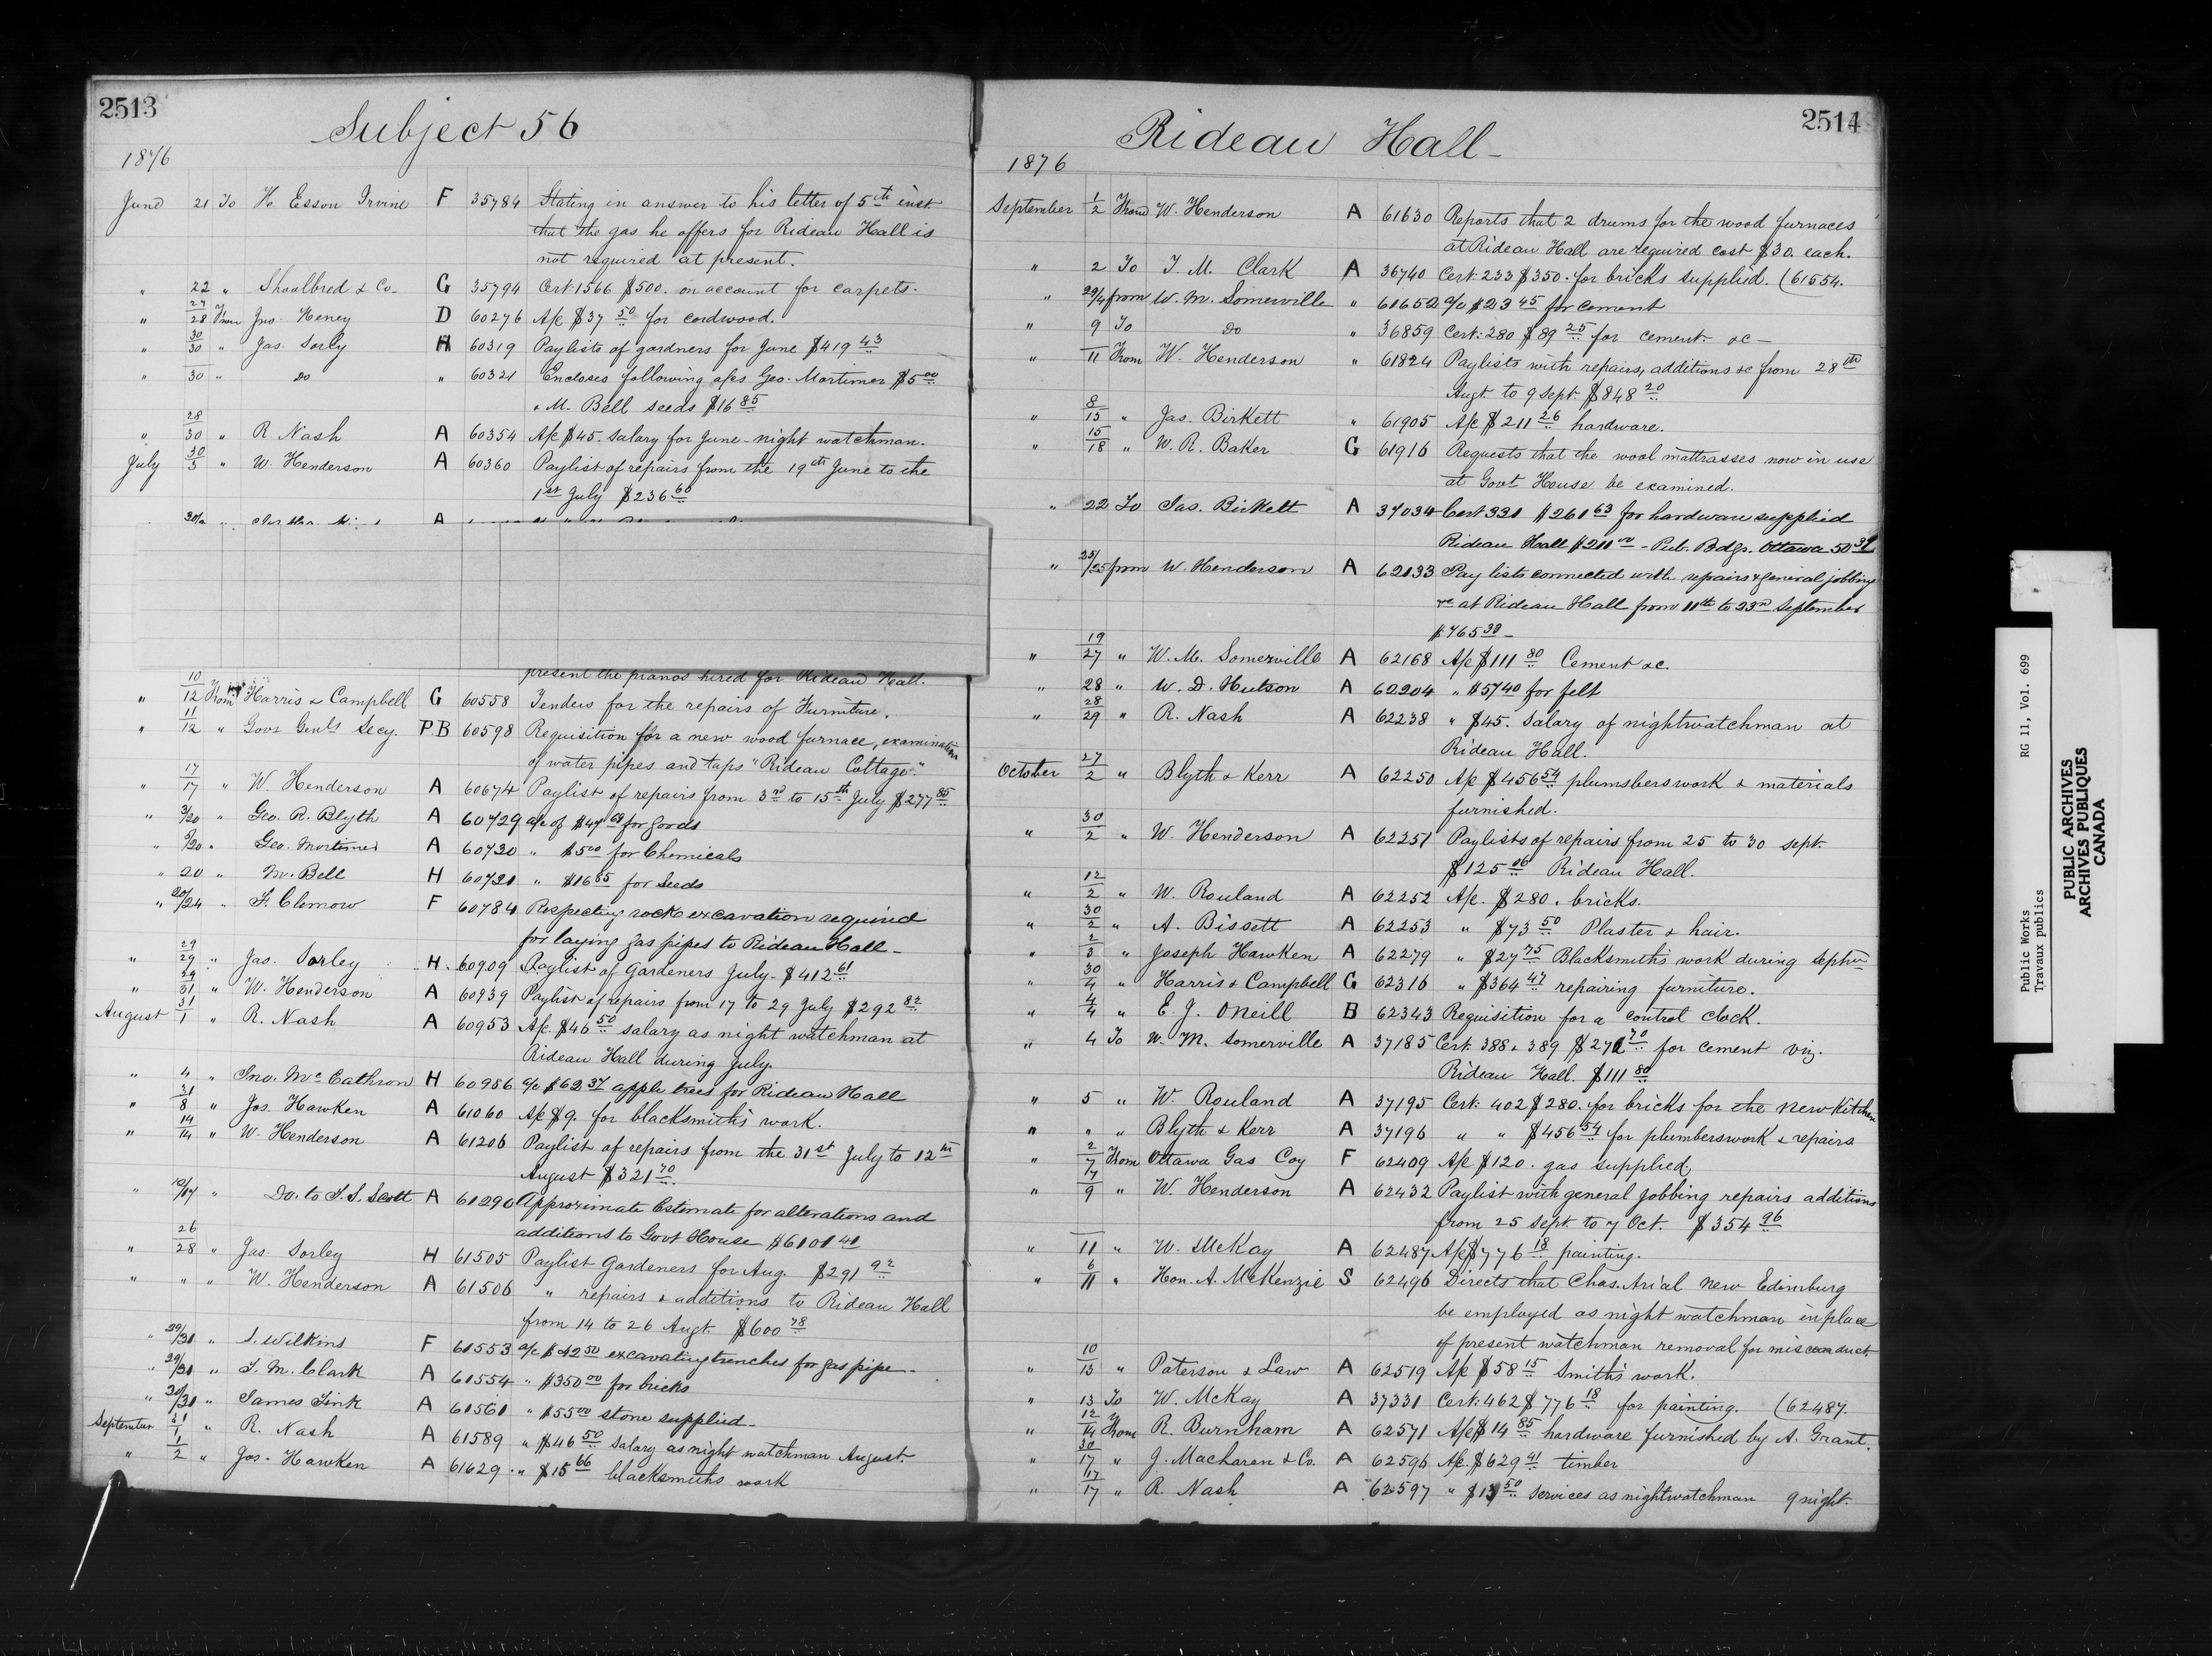 2513
Subject 56
1876
June 21 To H. Esson Irvine F 35784 Stating in answer to his letter of 5th inst
that the gas he offers for Rideau Hall is
not required at present.
" 22 " Shoolbred & Co- G 35794 Cert. 1566 $500. on account for carpets.
" 27/28 From Jno. Heney D 60276 A/c $37 50 for cordwood.
" 30/30 " Jas. Sorley H 60319 Paylists of gardners for June $419 43
" 30 " Do " 60321 Encloses following a/cs Geo. Mortimer $5 00
& M. Bell seeds $16 85
" 28/30 " R. Nash A 60354 A/c $45. salary for June - night watchman.
July 30/3 " W. Henderson A 60360 Paylist of repairs from the 19th June to the
1st July $236 60
present the pianos hired for Rideau Hall.
" 10/12 From Harris & Campbell G 60558 Tenders for the repairs of Furniture.
" 11/12 " Govr Genls Secy. P.B 60598 Requisition for a new wood furnace, examination
of water pipes and taps "Rideau Cottage."
" 17/17 " W. Henderson A 60674 Paylist of repairs from 3rd to 15th July $277 85
" 3/20 " Geo. R. Blyth A 60729 a/c of $47 for goods
" /20 " Geo. Mortimer A 60730 " $5 00 for Chemicals
" 20 " M. Bell H 60731 " $16 85 for seeds
" 20/24 " F. Clemow F 60784 Respecting rock excavation required
for laying gas pipes to Rideau Hall -
" 29/29 " Jas. Sorley H. 60909 Paylist of Gardeners July - $412 61
" 29/31 " W. Henderson A 60939 Paylist of repairs from 17 to 29 July $292 82
August 31/1 " R. Nash A 60953 A/c $46 50 salary as night watchman at
Rideau Hall during July.
" 4 " Jno. McCathron H 60986 a/c $62 37 apple trees for Rideau Hall
" 31/8 " Jos. Hawken A 61060 A/c $9. for blacksmiths work.
" 14/14 " W. Henderson A 61206 Paylist of repairs from the 31st July to 12th
August $321 70
" /17 " Do. to T. S. Scott A 61290 Approximate Estimate for alterations and
additions to Govt House $6101 40
" 26/28 " Jas. Sorley H 61505 Paylist Gardeners for Aug. $291 92
" " " W. Henderson A 61506 " repairs & additions to Rideau Hall
from 14 to 26 Augt. $600 78
" 29/31 " S. Wilkins F 61553 a/c $42 50 excavating trenches for gas pipe -
" 29/31 " T. M. Clark A 61554 " $350 00 for bricks
" 30/31 " James Fink A 61561 " $55 00 stone supplied -
September 31/1 " R. Nash A 61589 " $46 50 Salary as night watchman August.
" 1/2 " Jos. Hawken A 61629 " $15 66 blacksmiths work
2514
Rideau Hall -
1876
September 1/2 From W. Henderson A 61630 Reports that 2 drums for the wood furnaces
at Rideau Hall are required cost $30. each.
" 2 To T. M. Clark A 36740 Cert: 233 $350. for bricks supplied. (61554.
" 29/4 from W. M. Somerville " 61652 a/c $23 45 for cement
" 9 To Do " 36859 Cert: 280 $89 25 for cement &c -
" 11 From W. Henderson " 61824 Paylists with repairs, additions &c from 28th
Augt. to 9 Sept. $848 20
" 8/15 " Jas. Birkett " 61905 A/c $211 26 hardware.
" 15/18 " W. R. Baker G 61916 Requests that the wool mattrasses now in use
at Govt House be examined.
" 22 To Jas. Birkett A 37034 Cert 331 $261 63 for hardware supplied
Rideau Hall $211 - Pub. Bdgs. Ottawa 50 37
" 25/25 from W. Henderson A 62133 Pay lists connected with repairs & general jobbing
&c at Rideau Hall from 11th to 23rd September
$765 30 -
" 19/27 " W. M. Somerville A 62168 A/c $111 80 Cement &c.
" 28 " W. D. Hutson A 62204 " $57 40 for felt
" 28/29 " R. Nash A 62238 " $45. Salary of nightwatchman at
Rideau Hall.
October 27/2 " Blyth & Kerr A 62250 A/c $456 54 plumsbers work & materials
furnished.
" 30/2 " W. Henderson A 62251 Paylists of repairs from 25 to 30 sept.
$125 06 Rideau Hall.
" 12/2 " W. Rouland A 62252 A/c. $280. bricks.
" 30/2 " A. Bissett A 62253 " $73 50 Plaster & hair.
" 2/3 " Joseph Hawken A 62279 " $27 75 Blacksmith's work during Septbr
" 30/4 " Harris & Campbell G 62316 " $364 47 repairing furniture.
" 4/4 " E. J. ONeill B 62343 Requisition for a control clock.
" 4 To W. M. Somerville A 37185 Cert. 388 & 389 $272 70 for cement viz.
Rideau Hall. $111 80
" 5 " W. Rouland A 37195 Cert: 402 $280. for bricks for the new Kitchen
" " " Blyth & Kerr A 37196 " " $456 54 for plumberswork & repairs
" 2/7 From Ottawa Gas Coy F 62409 A/c $120. gas supplied,
" 7/9 " W. Henderson A 62432 Paylist with general jobbing repairs additions
from 25 sept. to 7 Oct. $354 96
" 11 " W. McKay A 62487 A/c $776 18 painting.
" 6/11 " Hon. A. McKenzie S 62496 Directs that Chas. Arial New Edinburg
be employed as night watchman in place
of present watchman removal for misconduct
" 10/13 " Paterson & Law A 62519 A/c $58 15 Smith's work.
" 13 To W. McKay A 37331 Cert: 462 $776 18 for painting. (62487.
" 12/14 From R. Burnham A 62571 A/c $14 85 hardware furnished by A. Grant.
" 30/17 " J. Maclaren & Co. A 62596 A/c. $629 41 timber
" 17/17 " R. Nash A 62597 " $13 50 Services as nightwatchman 9 night
Public Works RG 11, Vol. 699
Travaux publics
PUBLIC ARCHIVES
ARCHIVES PUBLIQUES
CANADA